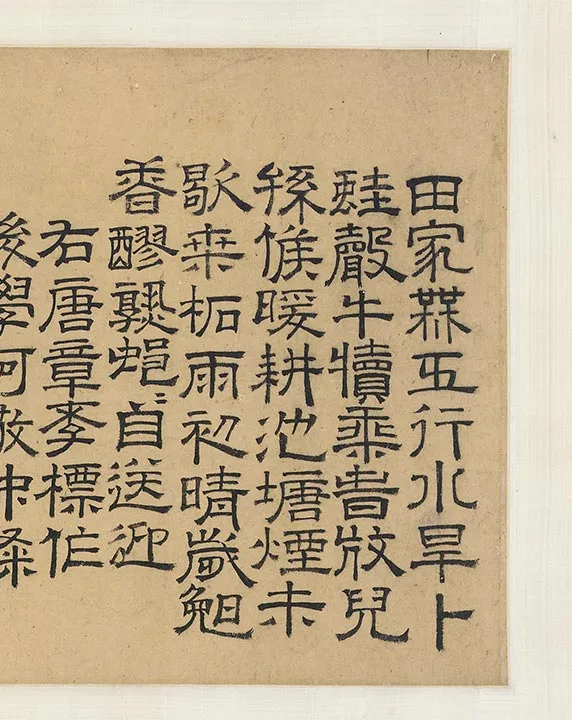 田家無五行水旱卜
蛙聲牛犢乘春牧兒
孫候暖耕池塘煙未
歇桑柘雨初晴歲晚
香醪熟邨〻自送迎
右唐章孝標作
後學